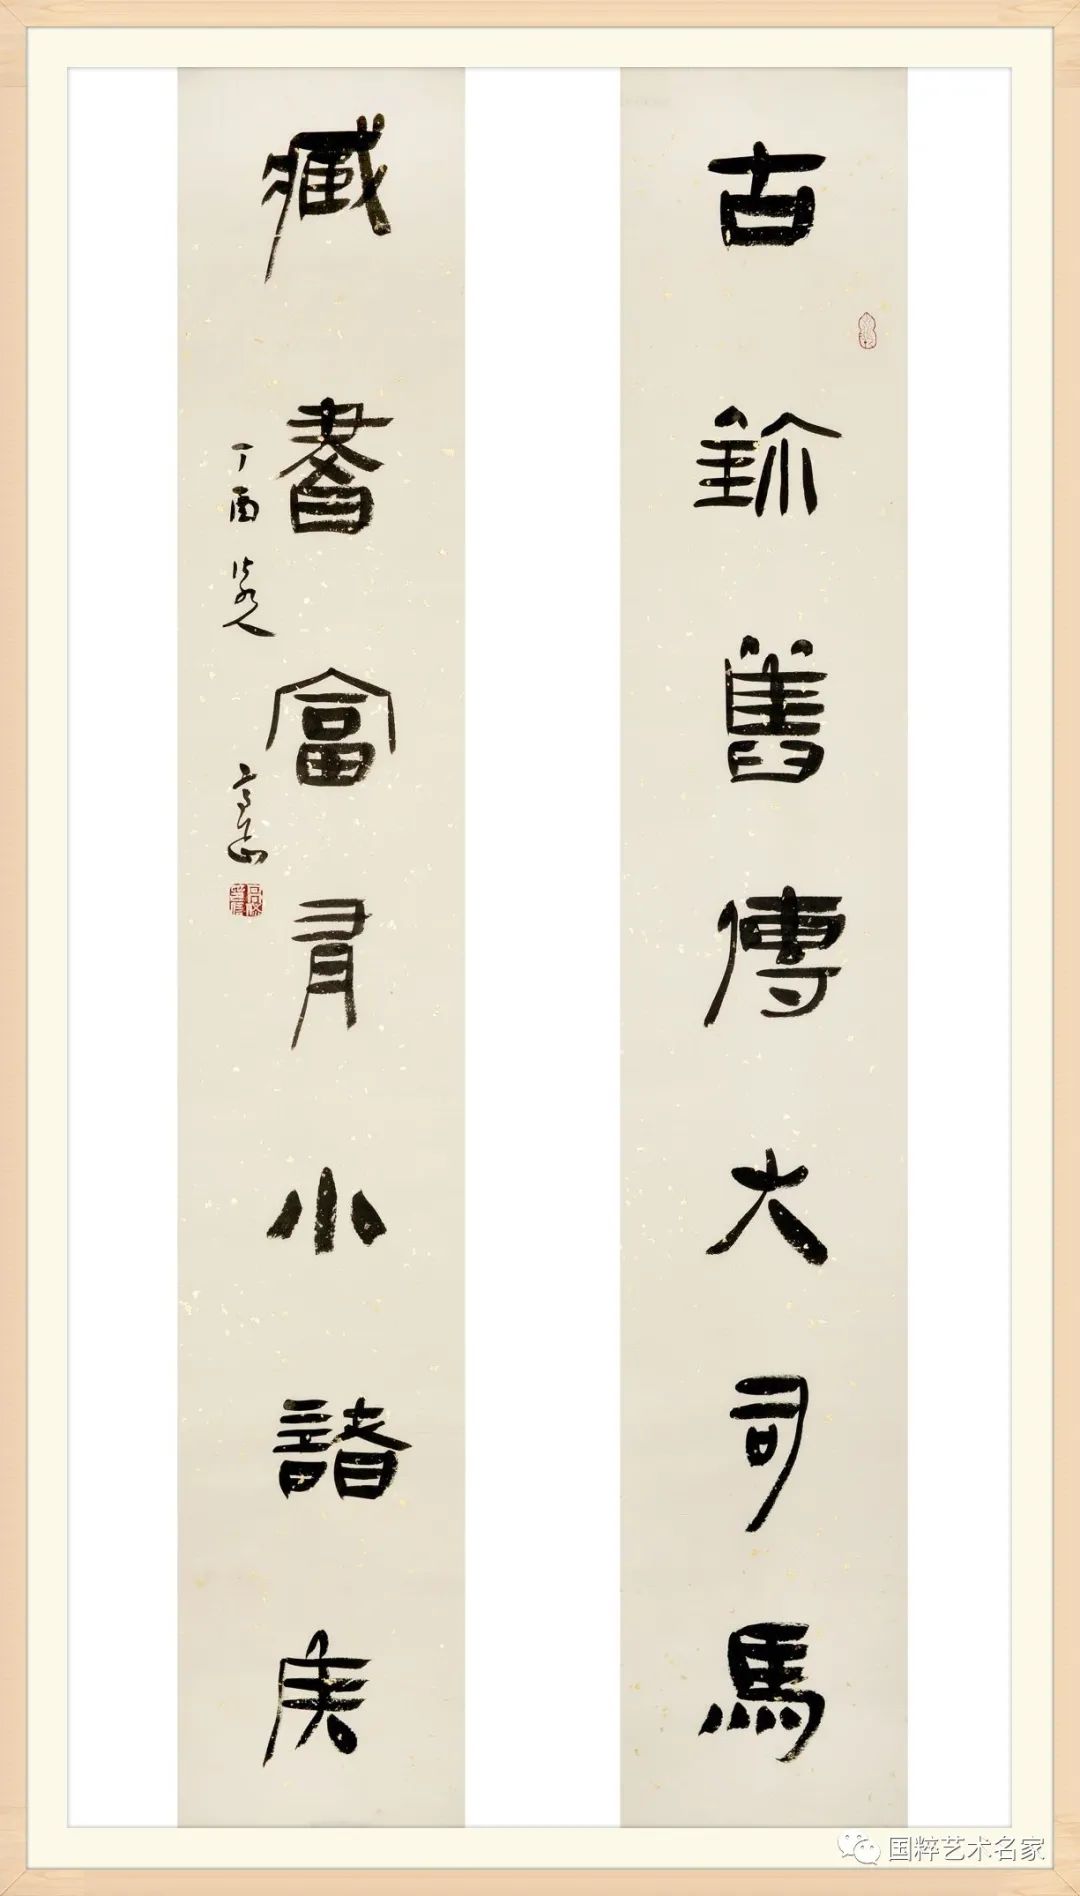 古鉨舊傳大司馬
臧書富有小諸矦
丁酉
国粹艺术名家